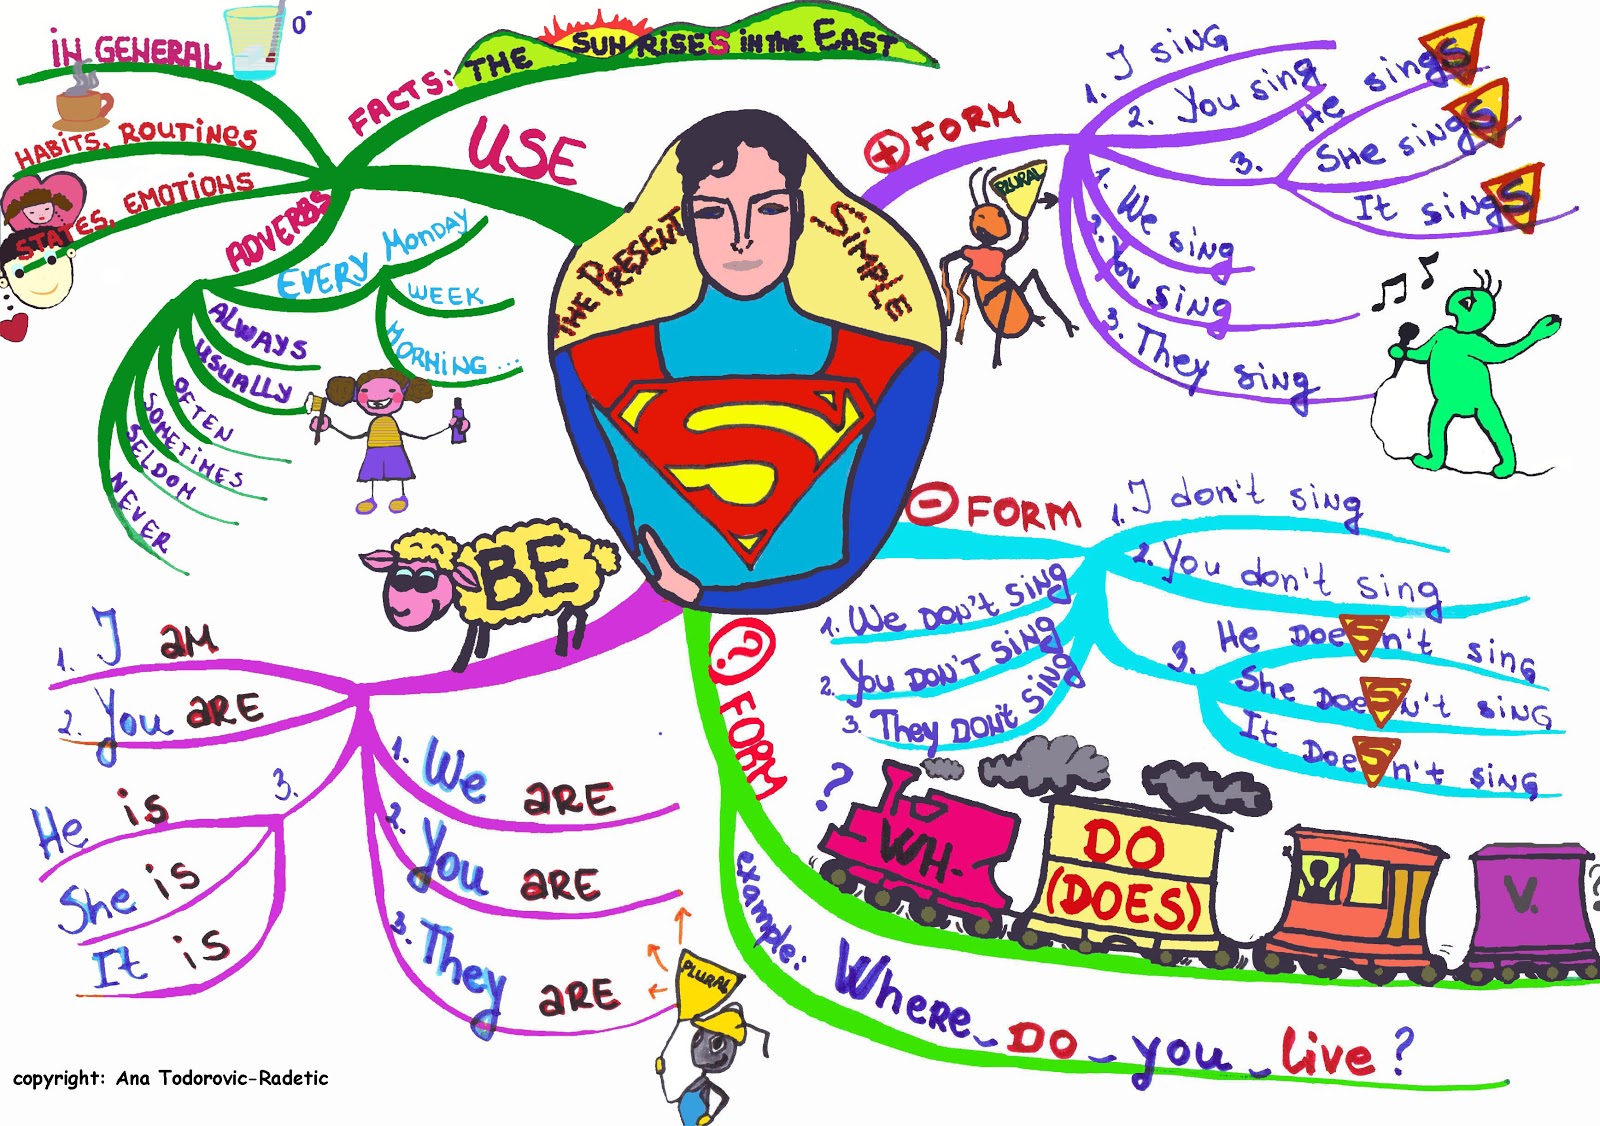 THE PRESENT SIMPLE
S
USE
IN GENERAL
0°
HABITS, ROUTINES
STATES, EMOTIONS
FACTS: THE SUN RISES in the EAST
ADVERBS
EVERY MONDAY
WEEK
MORNING ...
ALWAYS
USUALLY
OFTEN
SOMETIMES
SELDOM
NEVER
+ FORM
1. I sing
2. You sing
3.
He singS
She singS
It singS
PLURAL
1. We sing
2. You sing
3. They sing
- FORM
1. I don't sing
2. You don't sing
3.
He DoeSn't sing
She DoeSn't sing
It DoeSn't sing
1. We DON'T SING
2. You DON'T SING
3. They DON'T SING
BE
1. I AM
2. You ARE
3.
He is
She is
It is
1. We ARE
2. You ARE
3. They ARE
PLURAL
? FORM
?
WH-
DO
(DOES)
V.
?
example:
Where_DO_you_live?
copyright: Ana Todorovic-Radetic